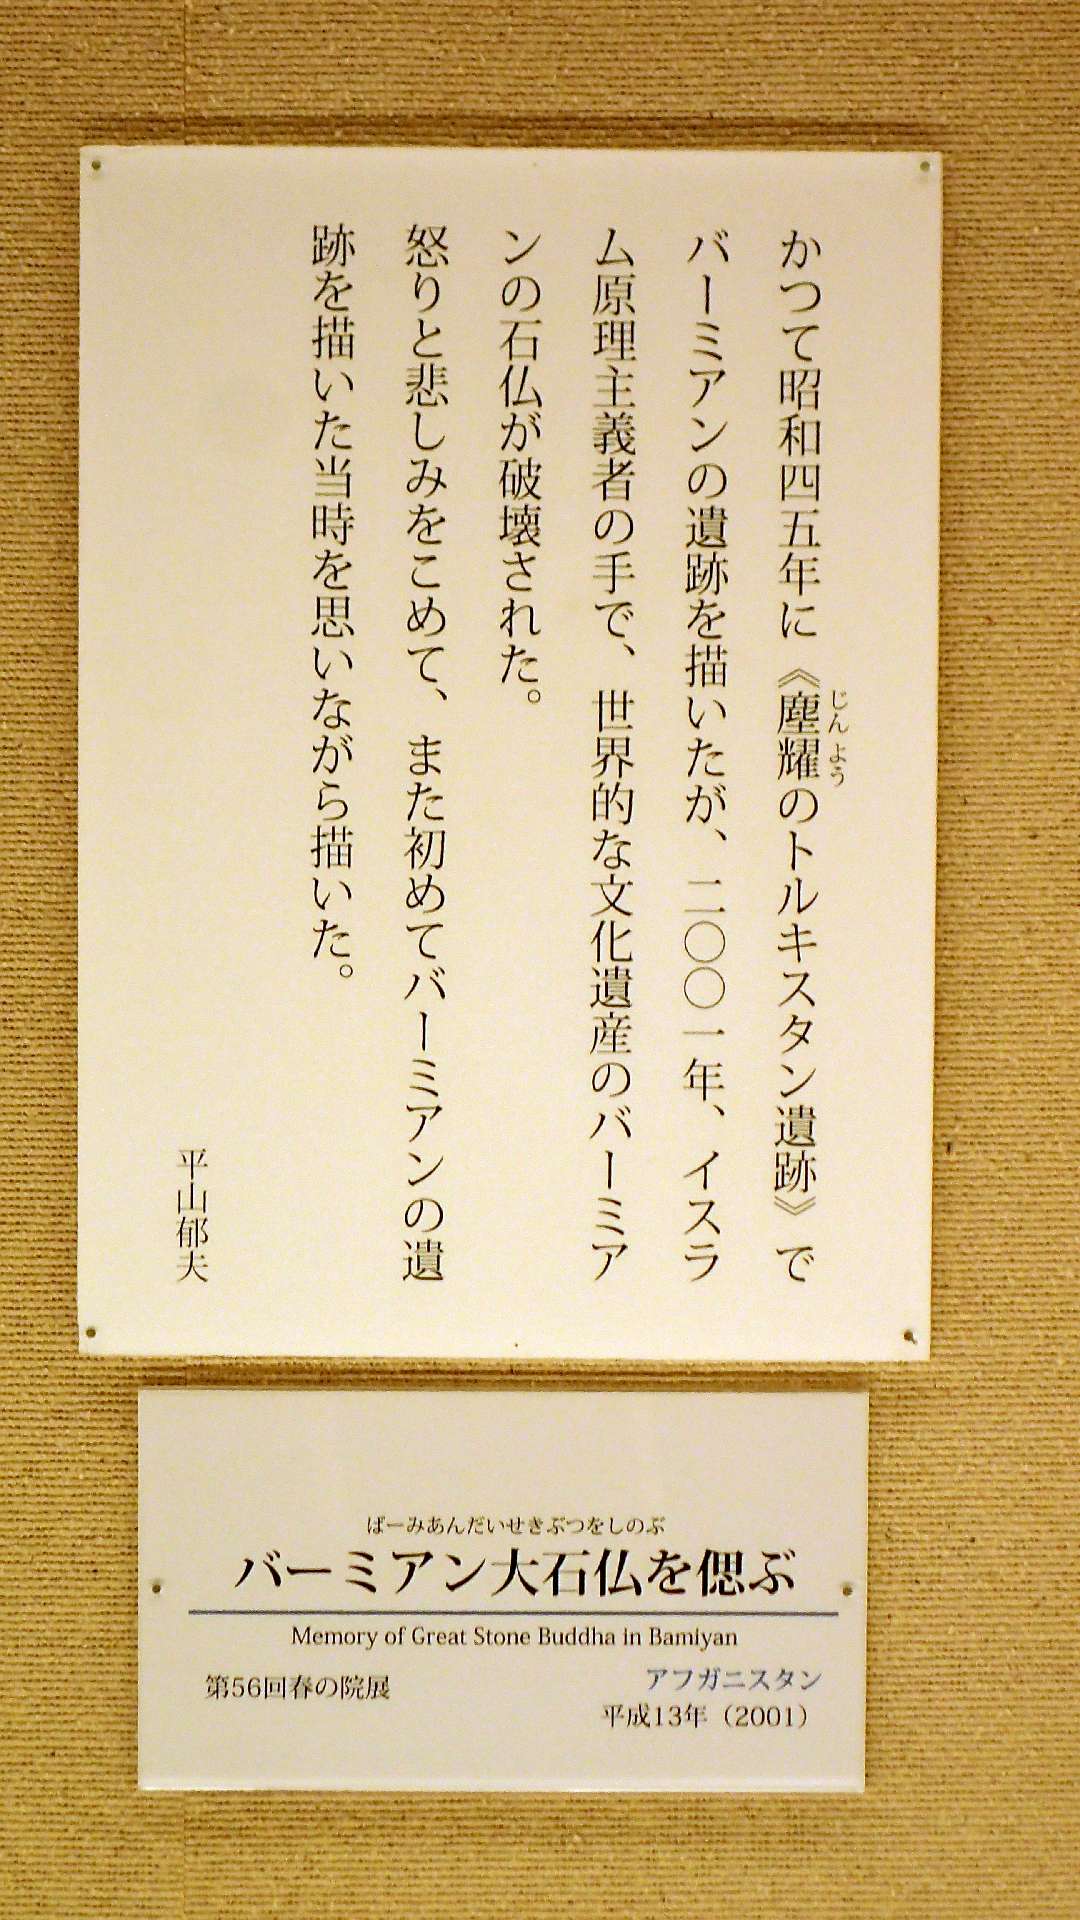 かつて昭和四五年に《塵耀のトルキスタン遺跡》で
じんよう
バーミアンの遺跡を描いたが、二〇〇一年、イスラ
ム原理主義者の手で、世界的な文化遺産のバーミア
ンの石仏が破壊された。
怒りと悲しみをこめて、また初めてバーミアンの遺
跡を描いた当時を思いながら描いた。
平山郁夫
ばーみあんだいせきぶつをしのぶ
バーミアン大石仏を偲ぶ
Memory of Great Stone Buddha in Bamiyan
第56回春の院展
アフガニスタン
平成13年（2001）